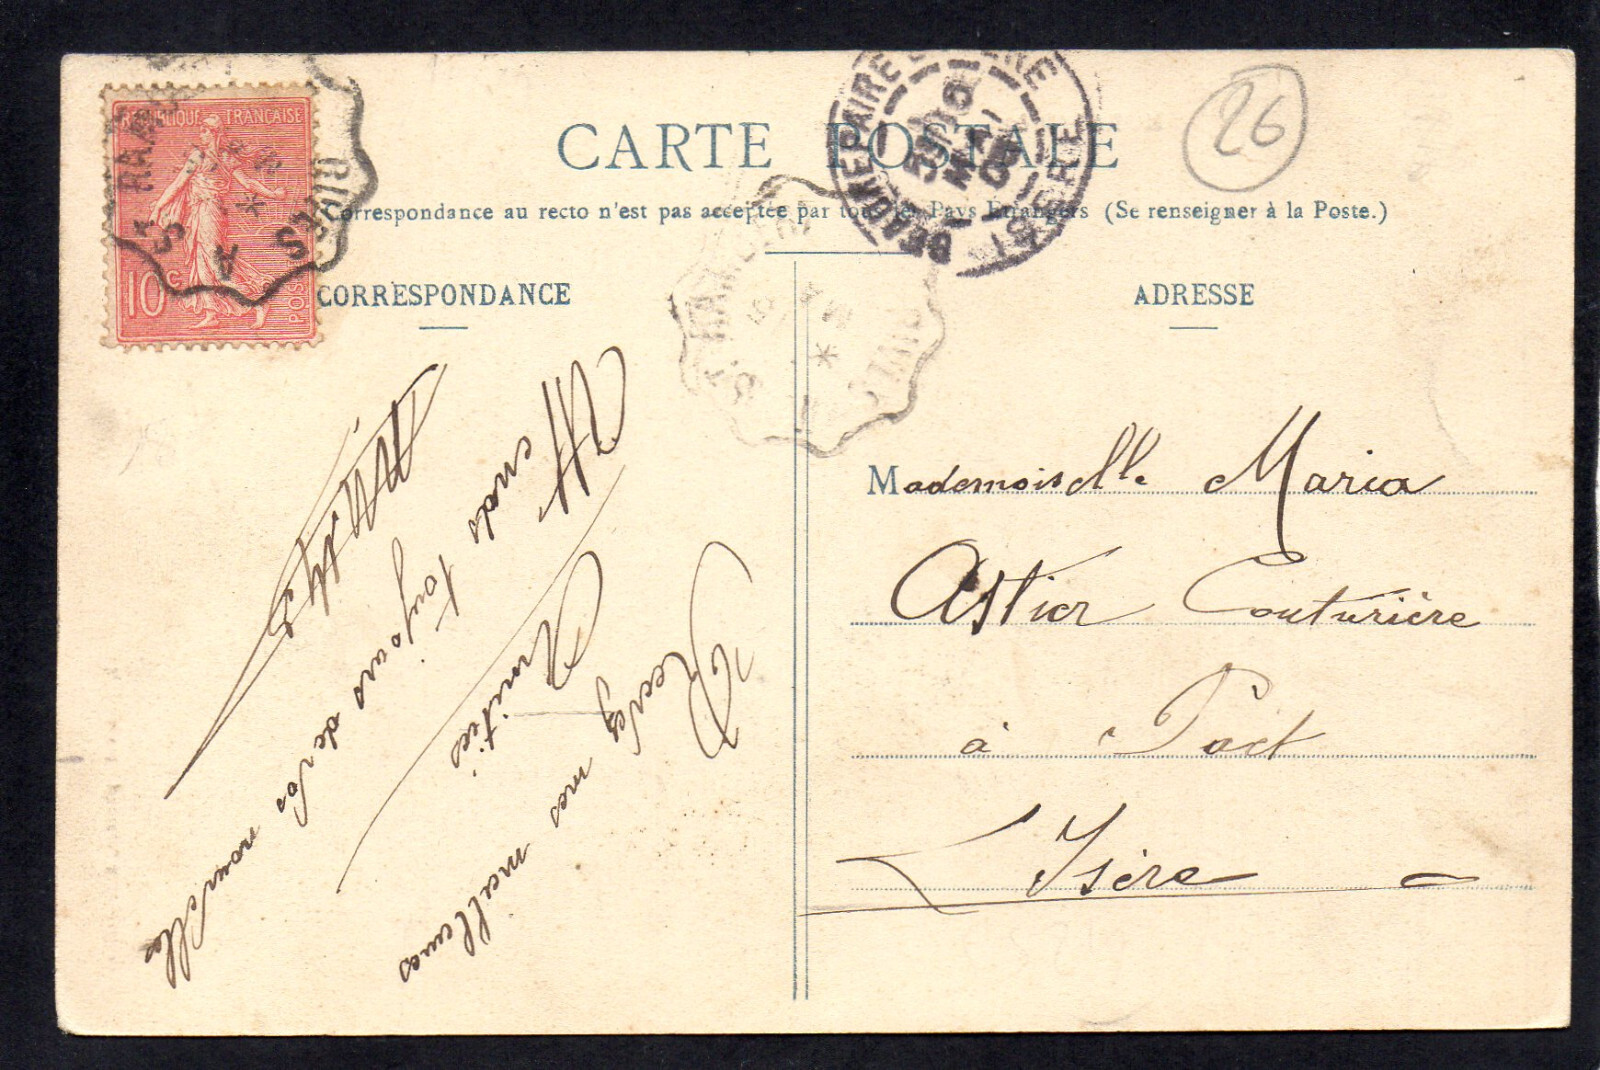 RÉPUBLIQUE FRANÇAISE
10c
POSTES
26
CARTE POSTALE
La Correspondance au recto n'est pas acceptée par tous les Pays Étrangers (Se renseigner à la Poste.)
CORRESPONDANCE
ADRESSE
Recevez mes meilleures
Amitiés
Attends toujours de vos
nouvelles
Mademoiselle Maria
Astier Couturière
à Pact
L'Isère
BEAUREPAIRE D'ISÈRE
MAI
ISÈRE
RIVES